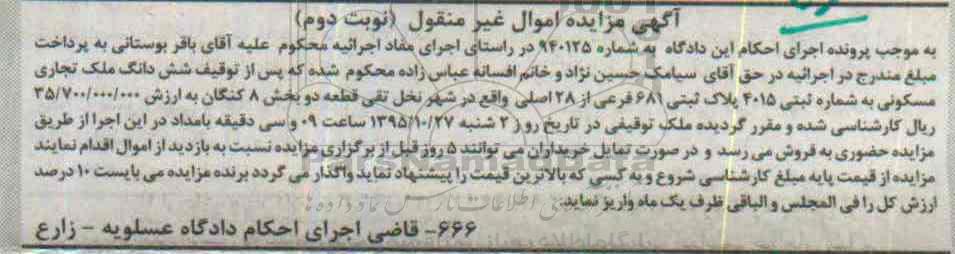 آگهی مزایده اموال غیر منقول (نوبت دوم)
به موجب پرونده اجرای احکام این دادگاه به شماره ۹۴۰۱۲۵ در راستای اجرای مفاد اجرائیه محکوم علیه آقای باقر بوستانی به پرداخت
مبلغ مندرج در اجرائیه در حق آقای سیامک حسین نژاد و خانم افسانه عباس زاده محکوم شده که پس از توقیف شش دانگ ملک تجاری
مسکونی به شماره ثبتی ۴۰۱۵ پلاک ثبتی ۶۸۱ فرعی از ۲۸ اصلی واقع در شهر نخل تقی قطعه دو بخش ۸ کنگان به ارزش ۳۵/۷۰۰/۰۰۰/۰۰۰
ریال کارشناسی شده و مقرر گردیده ملک توقیفی در تاریخ روز ۲ شنبه ۱۳۹۵/۱۰/۲۷ ساعت ۰۹ و سی دقیقه بامداد در این اجرا از طریق
مزایده حضوری به فروش می رسد و در صورت تمایل خریداران می توانند ۵ روز قبل از برگزاری مزایده نسبت به بازدید از اموال اقدام نمایند
مزایده از قیمت پایه مبلغ کارشناسی شروع و به کسی که بالاترین قیمت را پیشنهاد نماید واگذار می گردد برنده مزایده می بایست ۱۰ درصد
ارزش کل را فی المجلس و الباقی ظرف یک ماه واریز نماید.
۶۶۶- قاضی اجرای احکام دادگاه عسلویه - زارع